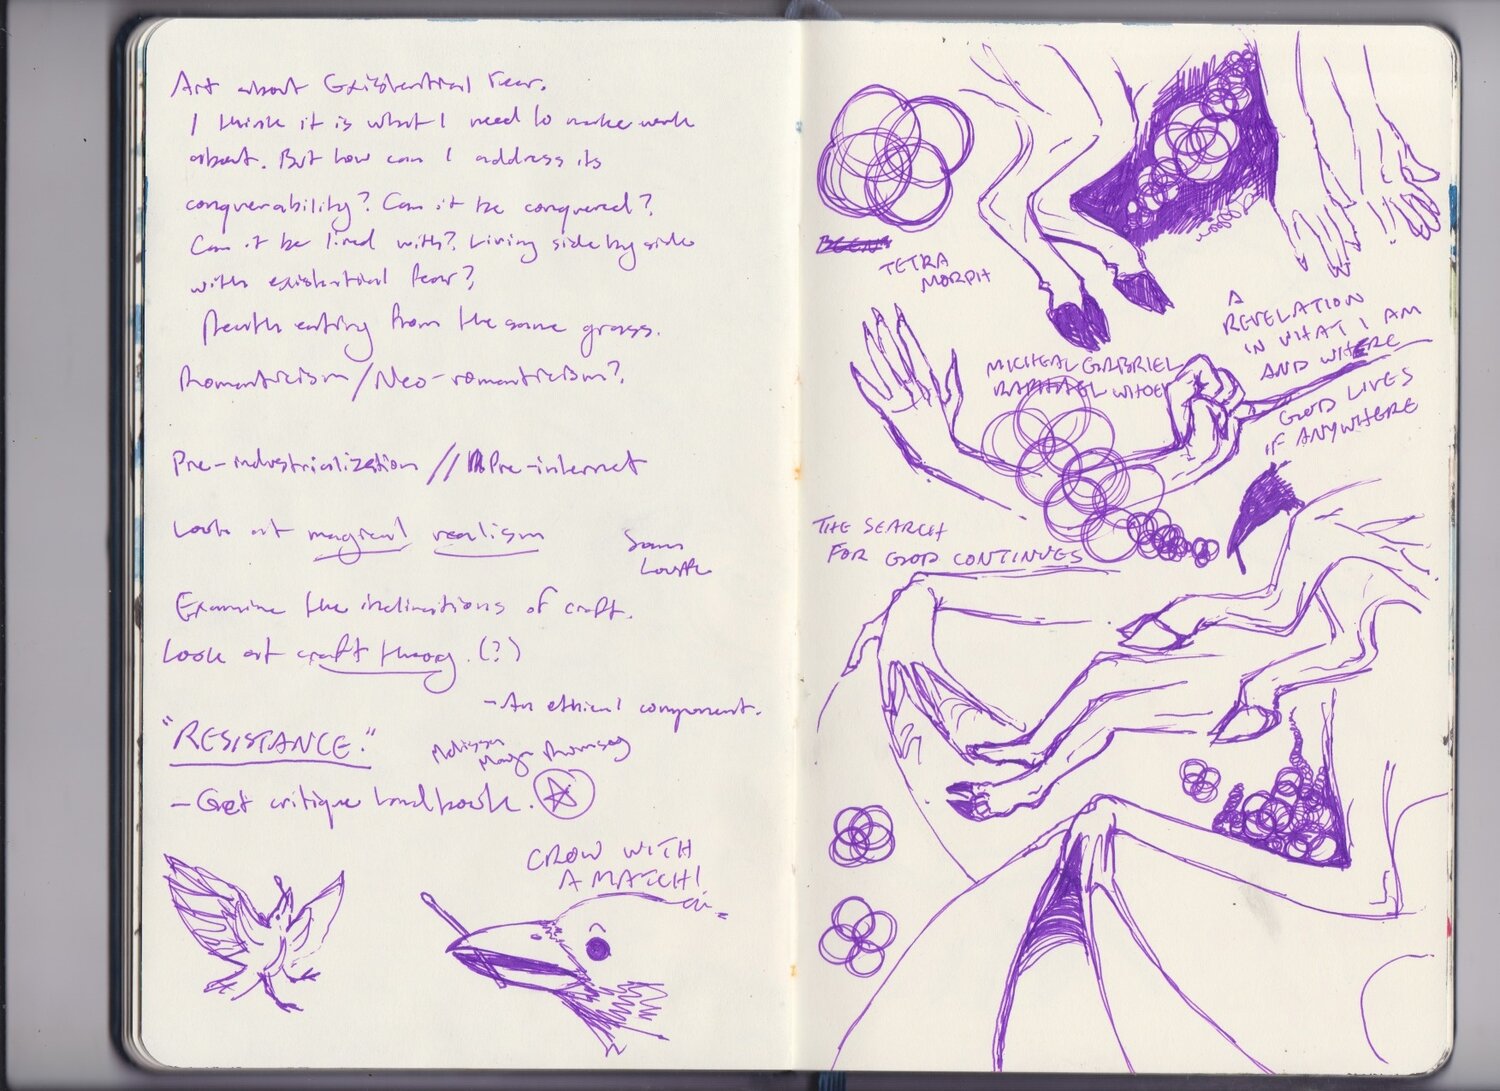 Art about Existential Fear.
I think it is what I need to make work
about. But how can I address its
conquerability? Can it be conquered?
Can it be lived with? Living side by side
with existential fear?
Death eating from the same grass.
Romanticism/Neo-romanticism?
Pre-industrialization // Pre-internet
Look at magical realism
Sam
Examine the inclinations of craft.
Look at craft theory. (?)
- An ethical component.
"RESISTANCE."
Melissa
- Get critique handbook.
CROW WITH
A MATCH!
TETRA
MORPH
MICHEAL GABRIEL
RAPHAEL
A
REVELATION
IN WHAT I AM
AND WHERE
GOD LIVES
IF ANYWHERE
THE SEARCH
FOR GOD CONTINUES